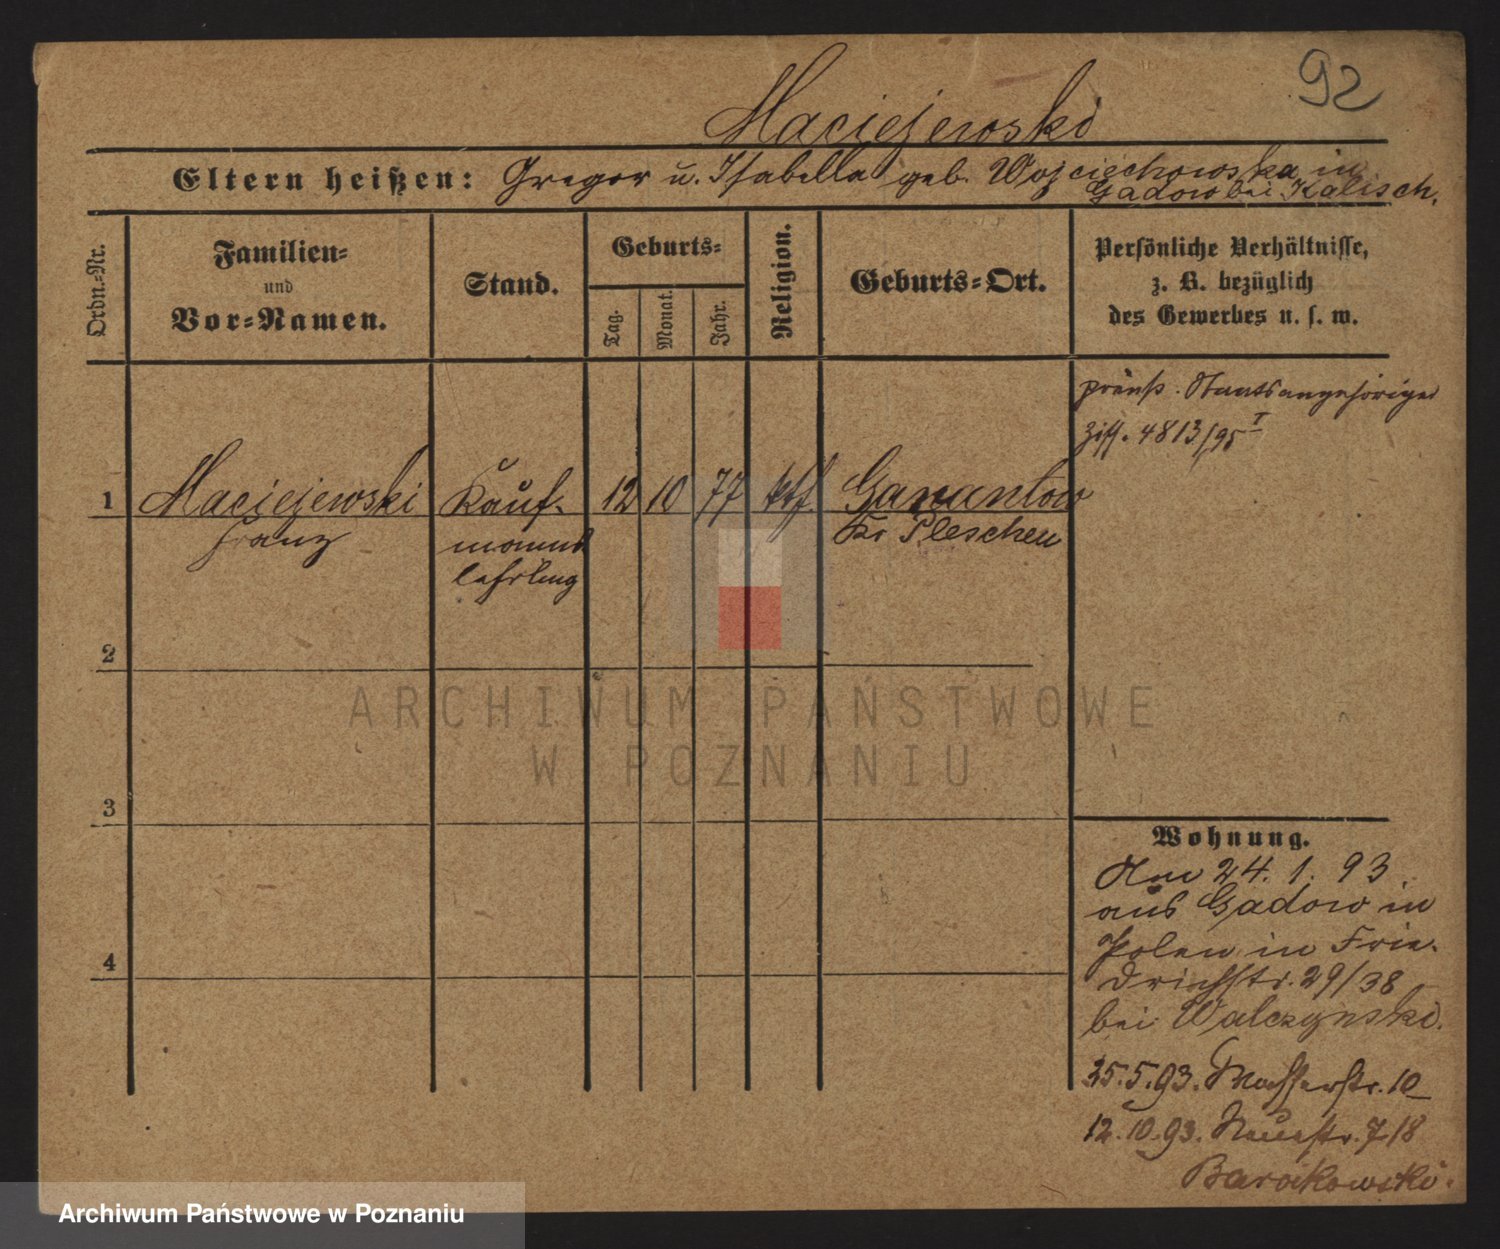 92
Maciejewski
Eltern heißen: Gregor u. Isabella geb. Wojciechowska in
Gadow bei Kalisch.
Ordn.-Nr.
Familien-
und
Vor-Namen.
Stand.
Geburts-
Tag.
Monat.
Jahr.
Religion.
Geburts-Ort.
Persönliche Verhältnisse,
z. B. bezüglich
des Gewerbes u. s. w.
preuß. Staatsangehöriger
4813/95 I
1 Maciejewski Kauf- 12 10 77 kth Ganantow
Franz manns Kr Pleschen
lehrling
2
3
4
Wohnung.
Am 24. 1. 93
aus Gadow in
Polen in Frie-
drichstr. 29/38
bei Walczynski.
25.5.93. Wasserstr. 10
12.10.93. Neuestr. 7 18
Barcikowski.
ARCHIWUM PAŃSTWOWE
W POZNANIU
Archiwum Państwowe w Poznaniu